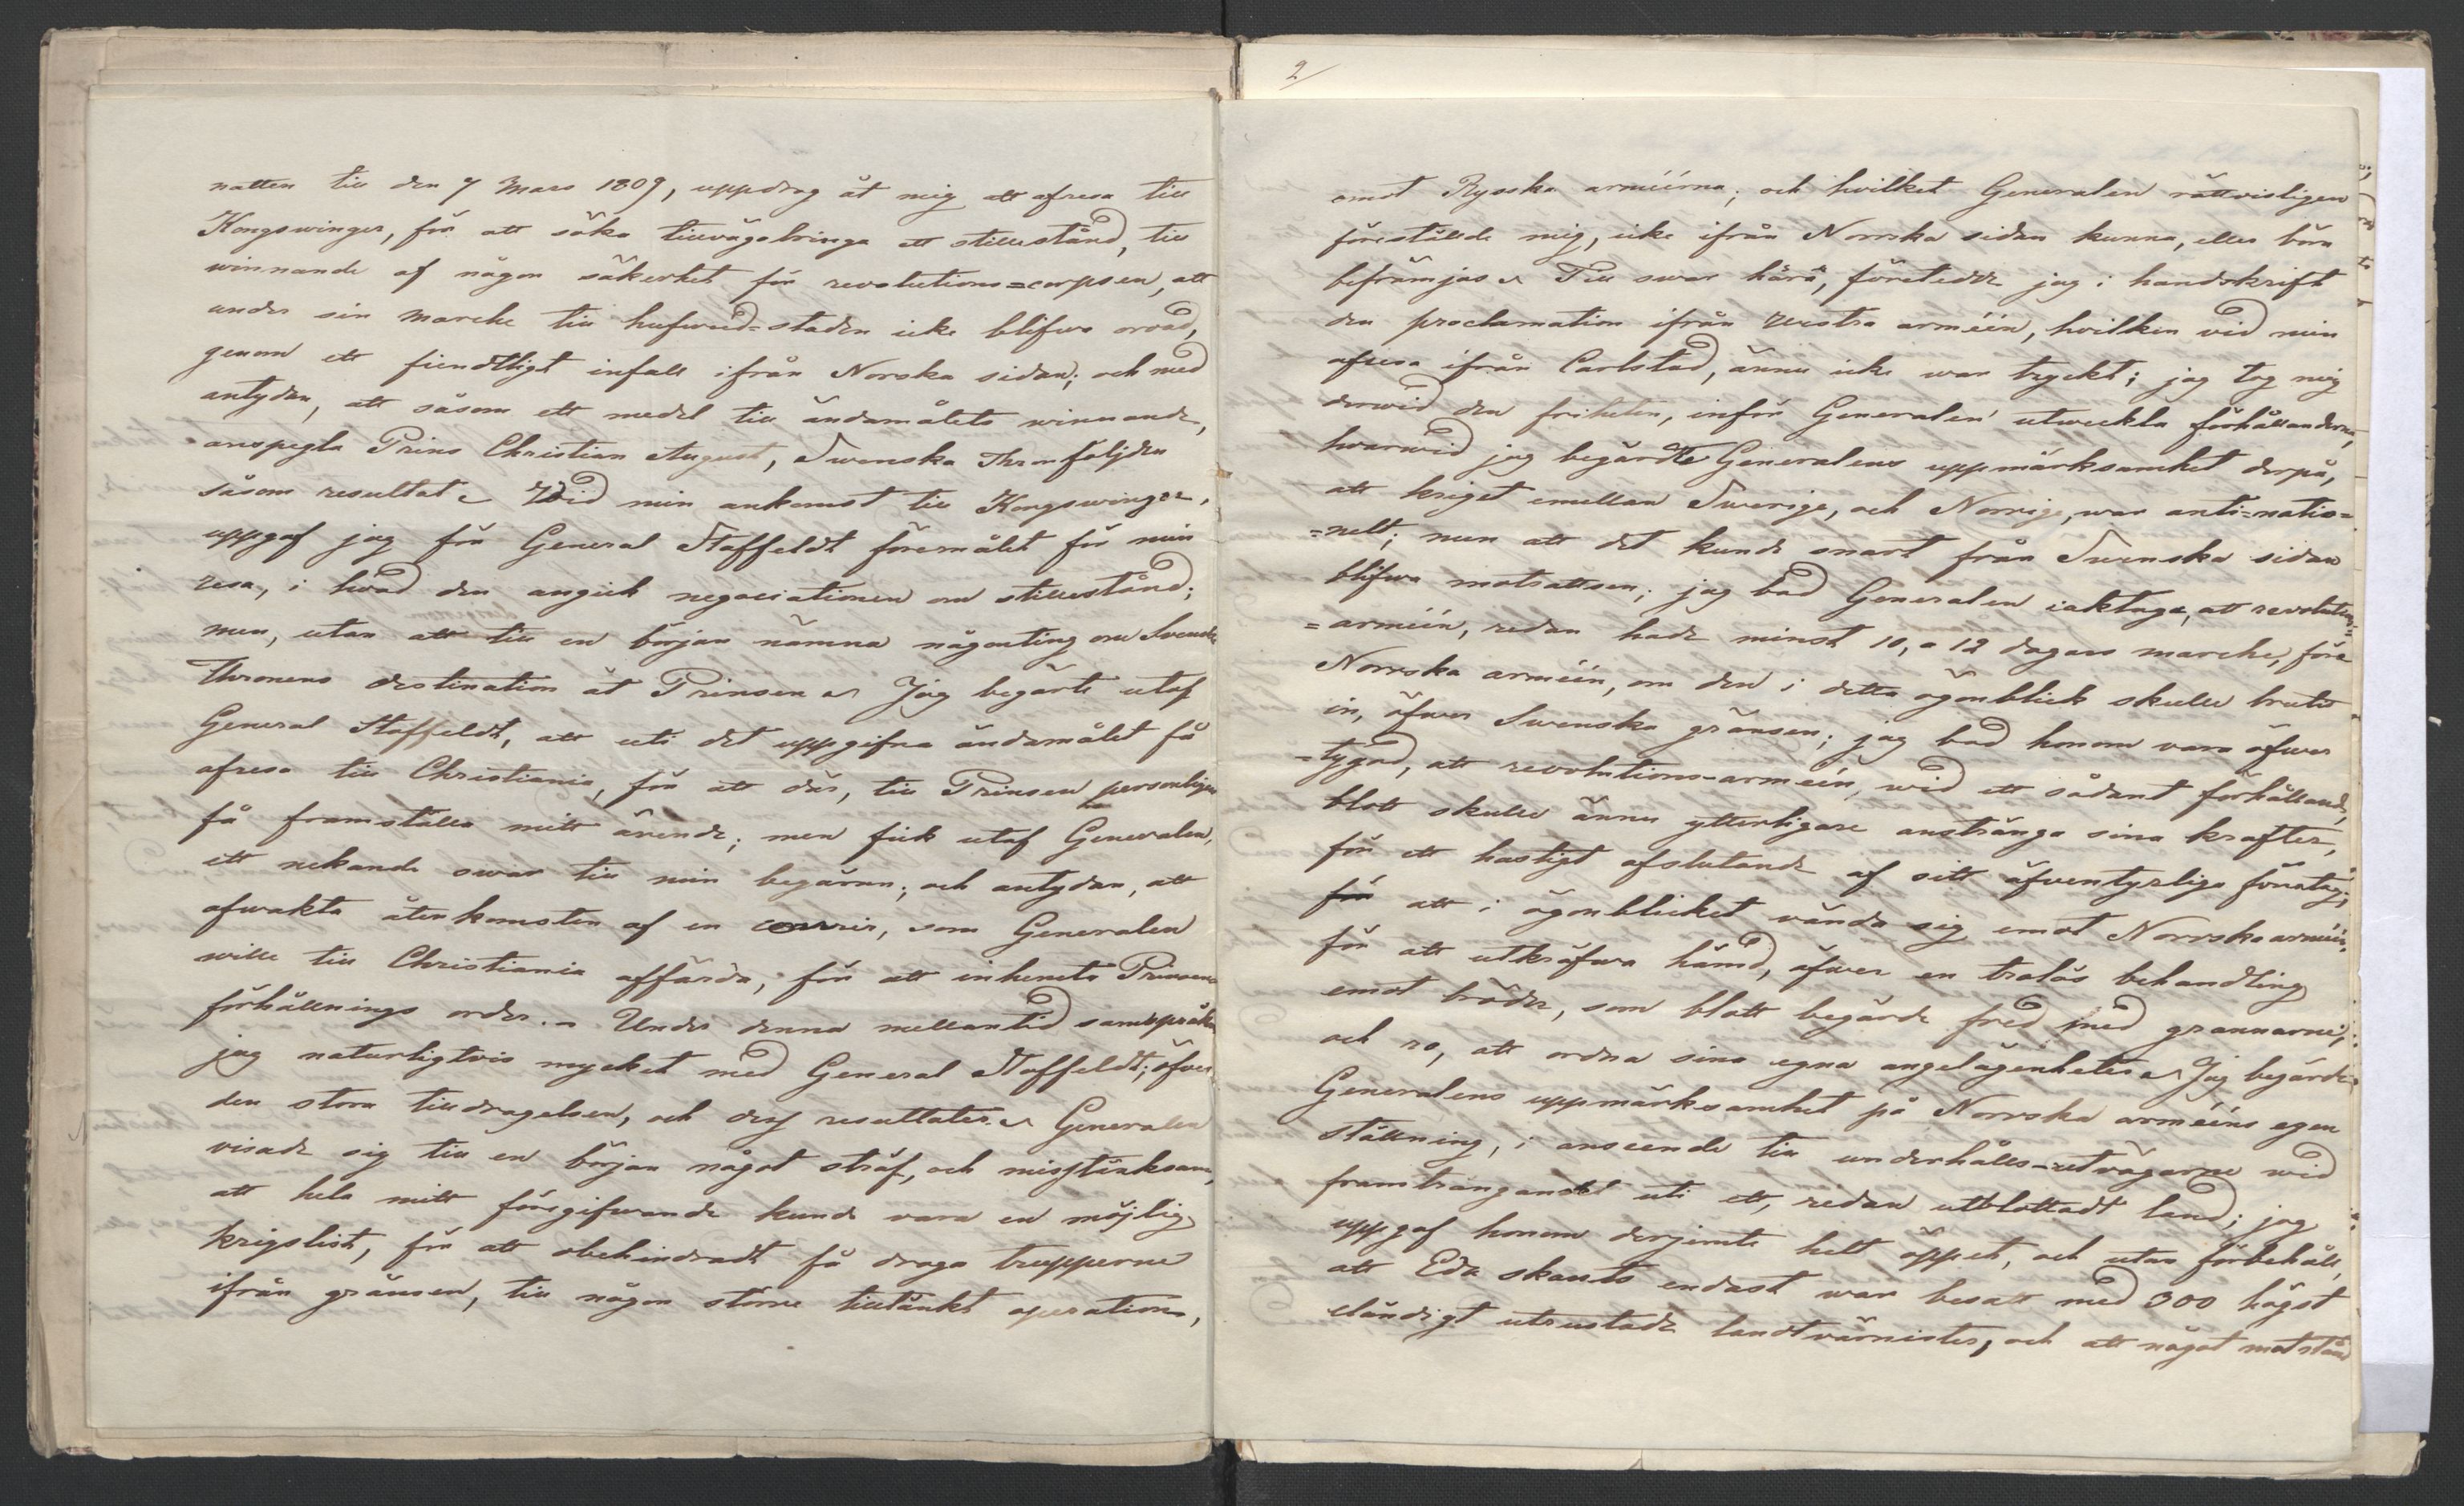 natten till den 7 Mars 1809, uppdrog åt mig att afresa till
Kongswinger, för att söka tillvägabringa ett stillestånd, till
winnande af någon säkerhet för revolutions=corpsen, att
under sin marche till hufwud=staden icke blifwa oroad,
genom ett fiendtligt infall ifrån Norska sidan; och med
antydan, att såsom ett medel till ändamålets winnande,
anspegla Prins Christian August, Swenska Thronföljden
såsom resultat. Wid min ankomst till Kongswinger,
uppgaf jag för General Staffeldt föremålet för min
resa, i hwad den angick negociationen om stillestånd;
men, utan att till en början nämna någonting om Svenska
Thronens destination åt Prinsen. Jag begärte utaf
General Staffeldt, att uti det uppgifna ändamålet få
afresa till Christiania, för att där, till Prinsen personligen
få framställa mitt ärende; men fick utaf Generalen,
ett nekande swar till min begäran; och antydan, att
afwakta återkomsten af en courrir, som Generalen
wille till Christiania affärda, för att inhemta Prinsens
förhållnings order. – Under denna mellantid samspråkade
jag naturligtvis mycket med General Staffeldt; öfver
den stora tilldragelsen, och dess resultater. Generalen
visade sig till en början något sträf, och misstänksam,
att hela mitt föregifwande kunde vara en möjlig
krigslist, för att obehindradt få draga trupperne
ifrån gränsen, till någon större tilltänkt operation,
2/
emot Rysska arméerna; och hvilket Generalen rättvisligen
föreställde mig, icke ifrån Norrska sidan kunna, eller böra
befrämjas. Till swar härå, företedde jag i handskrift
den proclamation ifrån westra arméen, hvilken vid min
afresa ifrån Carlstad, ännu icke war tryckt; jag tog mig
derwid den friheten, inför Generalen utweckla förhållanderna,
hvarwid jag begärdte Generalens uppmärksamhet derpå,
att kriget emellan Swerige, och Norrige, war anti=natio=
=nelt; men att det kunde snart från Swenska sidan
blifwa motsattsen; jag bad Generalen iakttaga, att revolutions
=arméen, redan hade minst 10, a 12 dagars marche, före
Norrska arméen, om den i detta ögonblick skulle bruta
in, öfwer Swenska gränsen; jag bad honom vara öfwer
=tygad, att revolutions-arméen, wid ett sådant förhållande,
blott skulle ännu ytterligare anstränga sina krafter,
för ett hastigt afslutande af sitt äfwentyrliga företag;
för att i ögonblicket vända sig emot Norrska arméen,
för att utkräfwa hämd, öfwer en trolös behandling
emot bröder, som blott begärde fred med grannarne,
och ro, att ordna sina egna angelägenheter. Jag begärde
Generalens uppmärksamhet på Norrska arméens egen
ställning, i anseende till underhålls-utvägarne wid
framtrangandet uti ett, redan utblottadt land; jag
uppgaf honom derjemte helt öppet, och utan förbehåll,
att Eda skants endast war besatt med 300 högst
eländigt utrustade landtvärnister, och att något motstånd